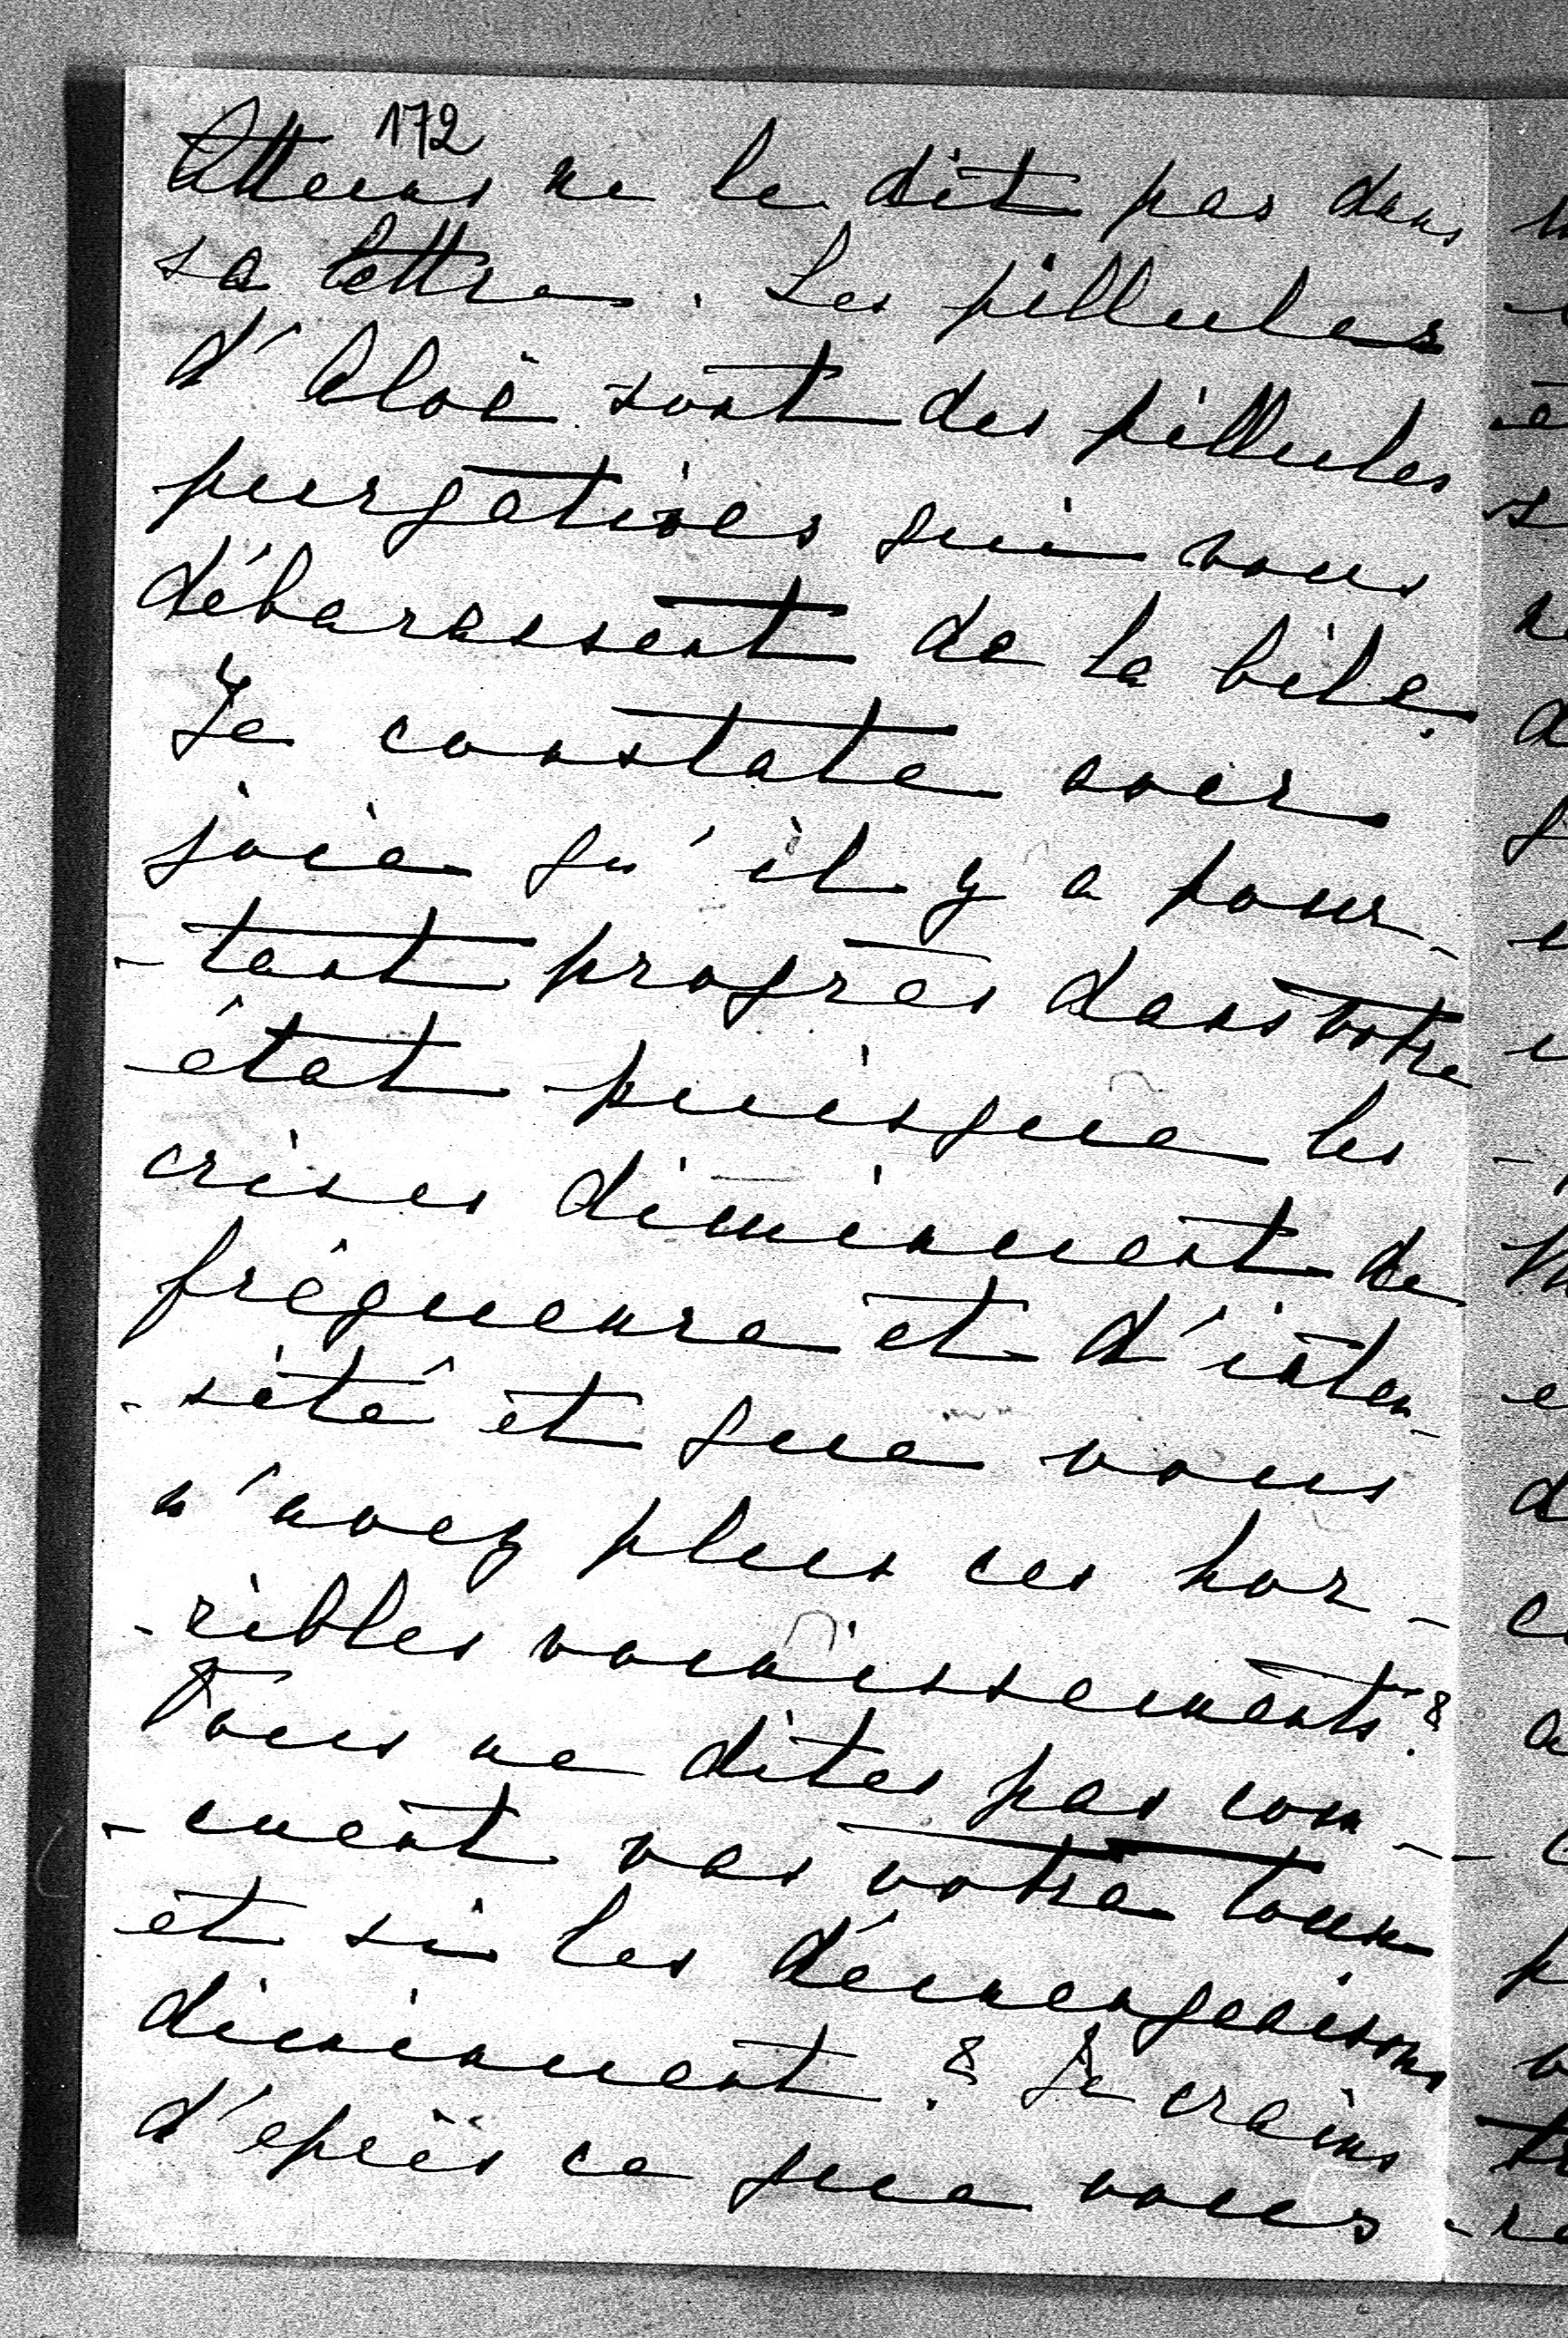 172
ne le dit pas dans
sa lettre. Les pillules
d'Aloë sont des pillules
purgatives qui vous
débarassent de la bile.
Je constate avec
joie qu'il y a pour-
-tant progrès dans votre
état puisque les
crises diminuent de
fréquence et d'inten-
-sité et que vous
n'avez plus ces hor-
-ribles vomissements?
Vous ne dites pas com-
-ment vas votre toux
et si les démengeaisons
diminuent? Je crains
d'après ce que vous